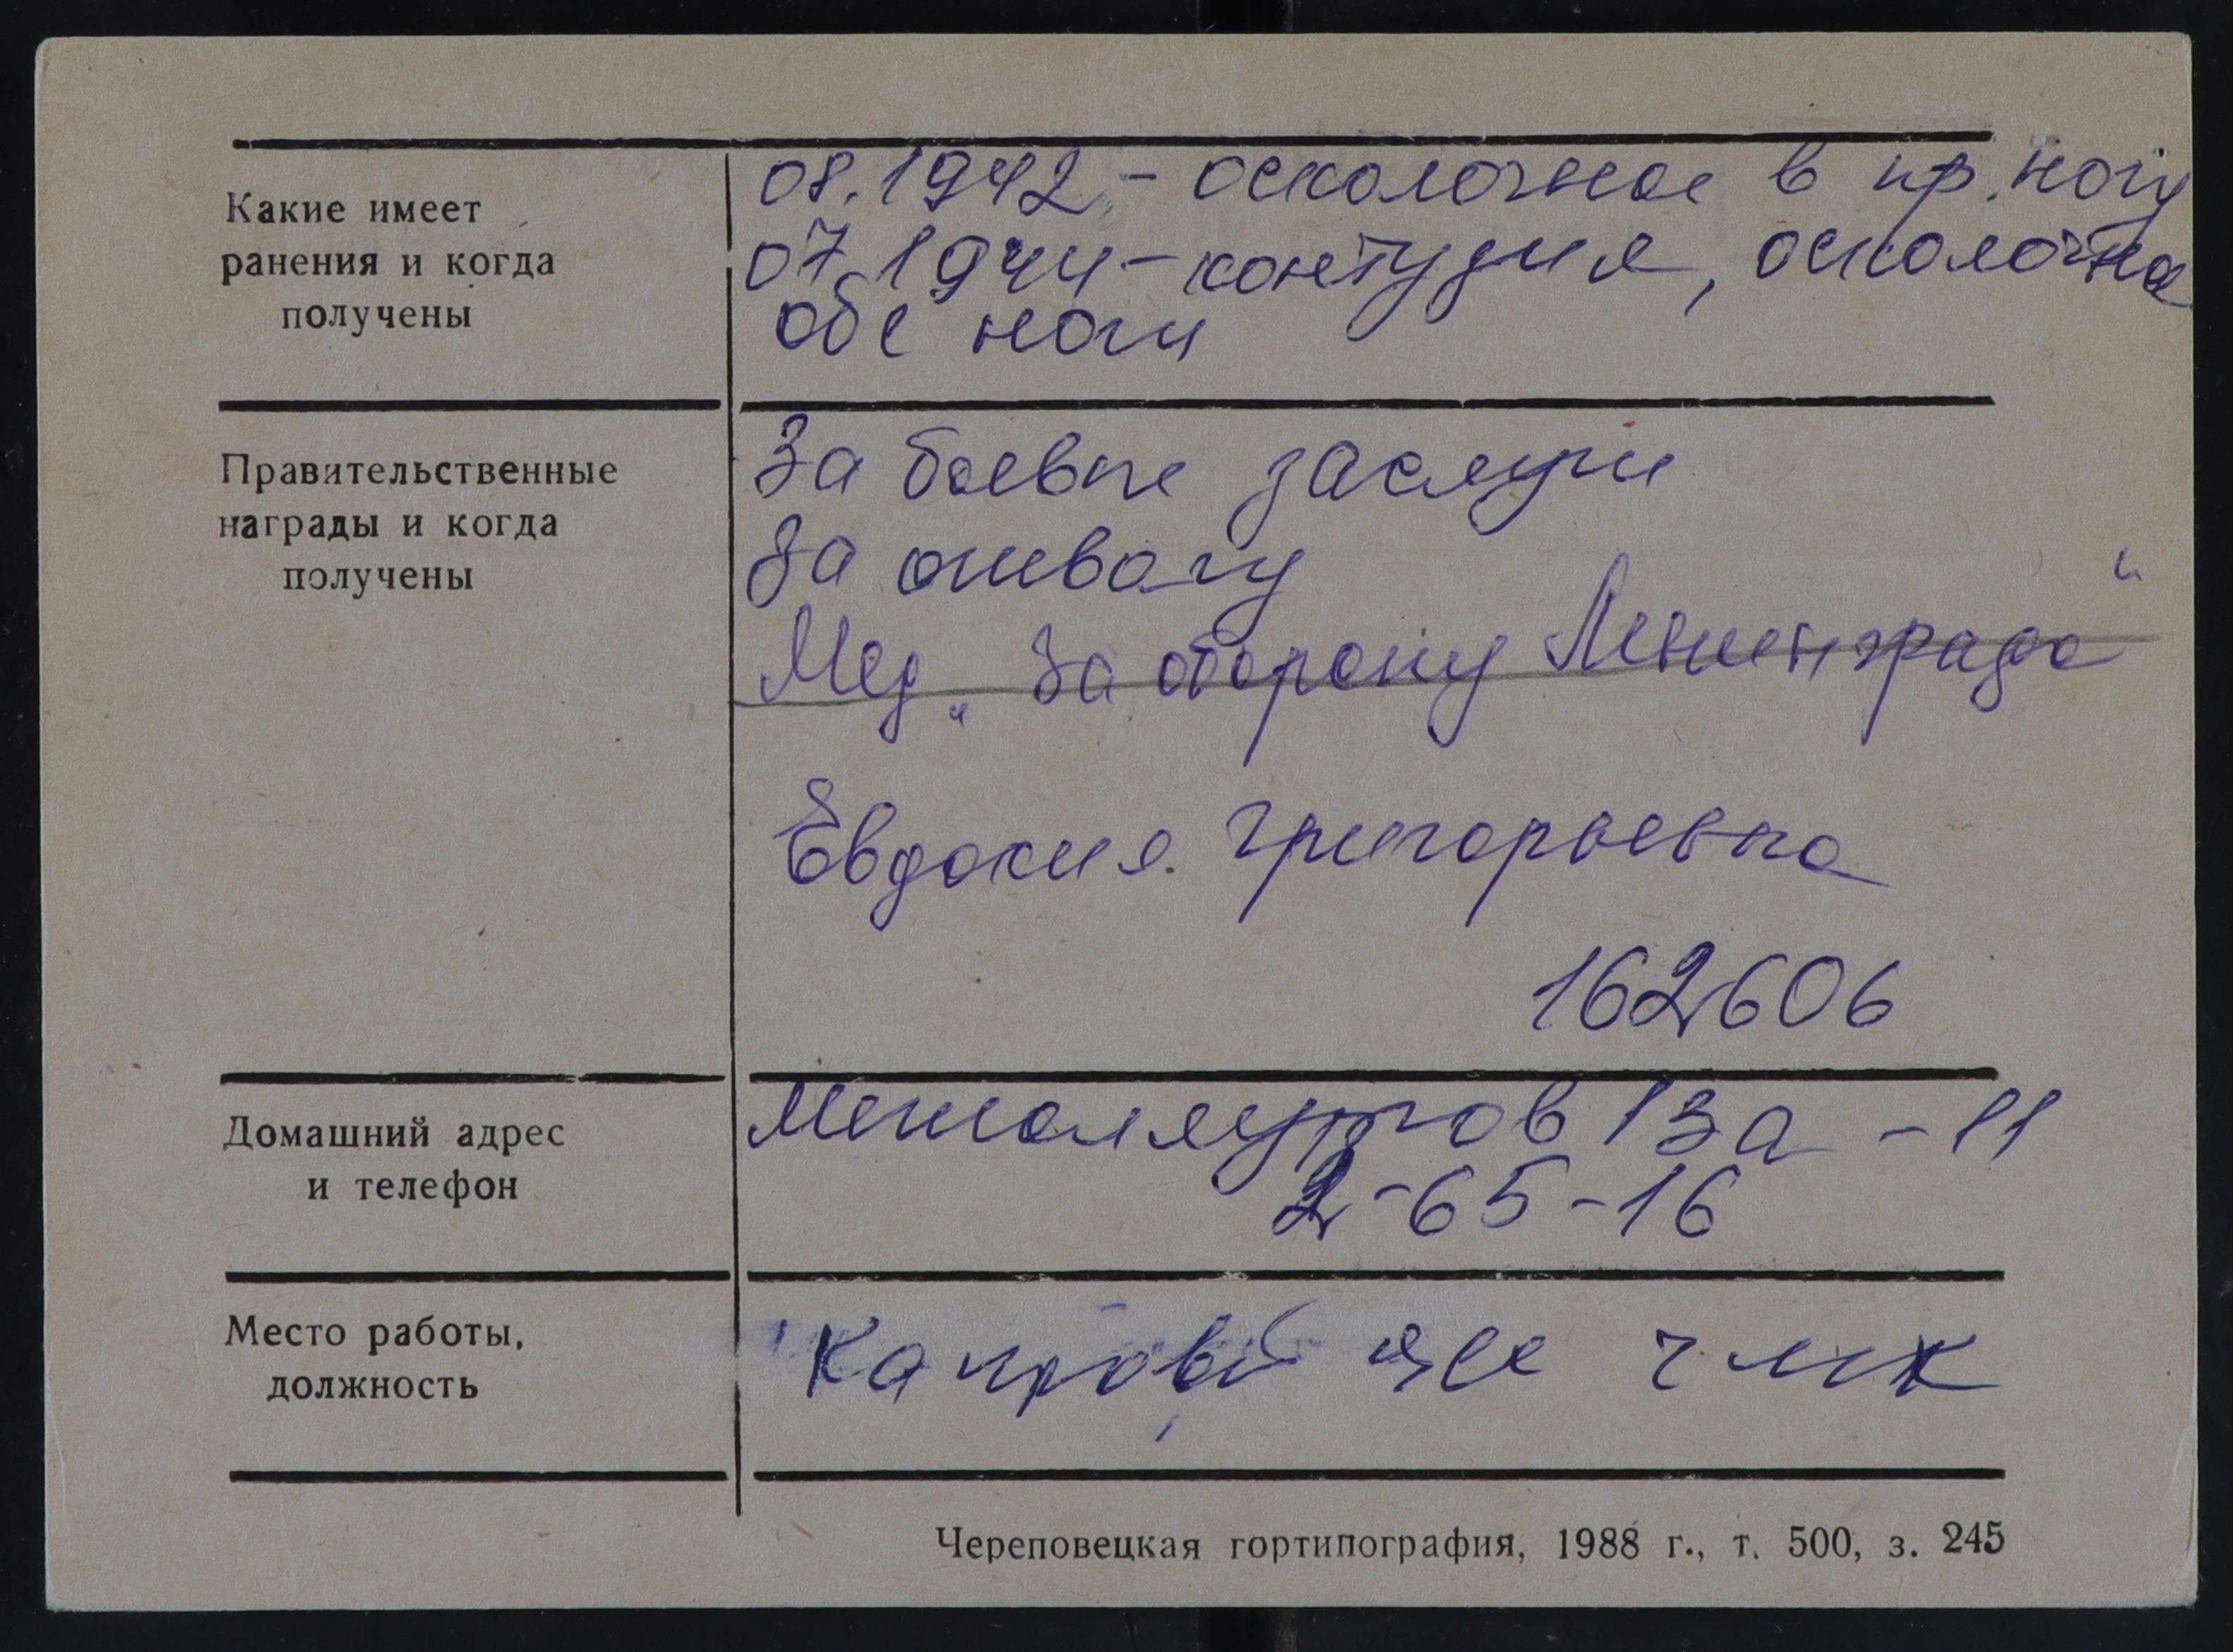 Какие имеет
ранения и когда
получены
08.1942 - осколочное в пр. ногу
07.1944 - контузия, осколочна
обе ноги
Правительственные
награды и когда
получены
За боевые заслуги
За отвагу
Мед „За оборону Ленинграда“
Евдокия Григорьевна
162606
Домашний адрес
и телефон
Металлургов 13а - 11
2-65-16
Место работы,
должность
цех ЧМК
Череповецкая гортипография, 1988 г., т. 500, з. 245